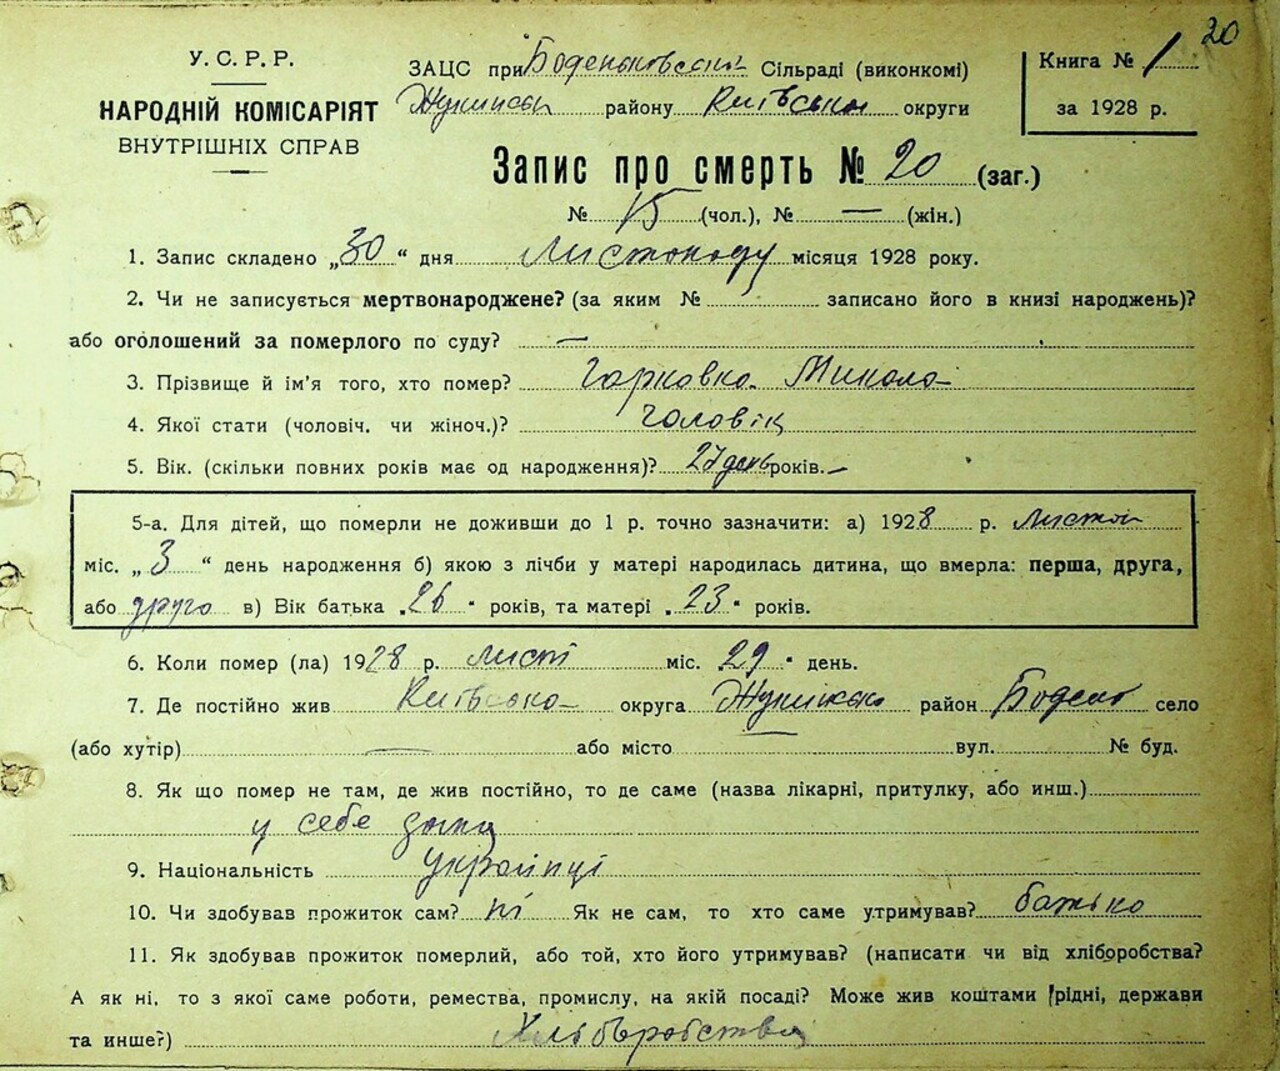 20
У. С. Р. Р.
НАРОДНІЙ КОМІСАРІЯТ
ВНУТРІШНІХ СПРАВ
ЗАЦС при Боденьковской Сільраді (виконкомі)
Жукинськ району Київська округи
Книга № 1
за 1928 р.
Запис про смерть № 20 (заг.)
№ 15 (чол.), № — (жін.)
1. Запис складено „30“ дня Листопаду місяця 1928 року.
2. Чи не записується мертвонароджене? (за яким № записано його в книзі народжень)?
або оголошений за померлого по суду? —
3. Прізвище й ім'я того, хто помер? Гарковко Микола
4. Якої стати (чоловіч. чи жіноч.)? чоловік
5. Вік. (скільки повних років має од народження)? 27 день років. —
5-а. Для дітей, що померли не доживши до 1 р. точно зазначити: а) 1928 р. листоп
міс. „3“ день народження б) якою з лічби у матері народилась дитина, що вмерла: перша, друга,
або друга в) Вік батька „26" років, та матері „23" років.
6. Коли помер (ла) 1928 р. лист міс. 29 " день.
7. Де постійно жив Київська округа Жукинськ район Боденьк село
(або хутір) — або місто вул. № буд.
8. Як що помер не там, де жив постійно, то де саме (назва лікарні, притулку, або инш.)
у себе дома
9. Національність українці
10. Чи здобував прожиток сам? ні Як не сам, то хто саме утримував? батько
11. Як здобував прожиток померлий, або той, хто його утримував? (написати чи від хліборобства?
А як ні, то з якої саме роботи, ремества, промислу, на якій посаді? Може жив коштами рідні, держави
та инше?) Хліборобства